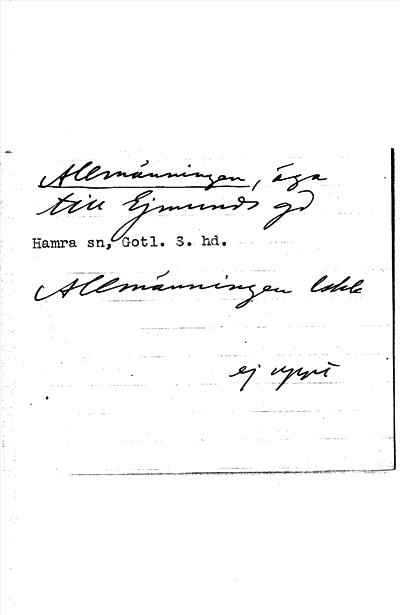 Allmänningen, äga
till Ejmunds gd
Hamra sn, Gotl. S. hd.
Allmänningen Lskk
ej uppt